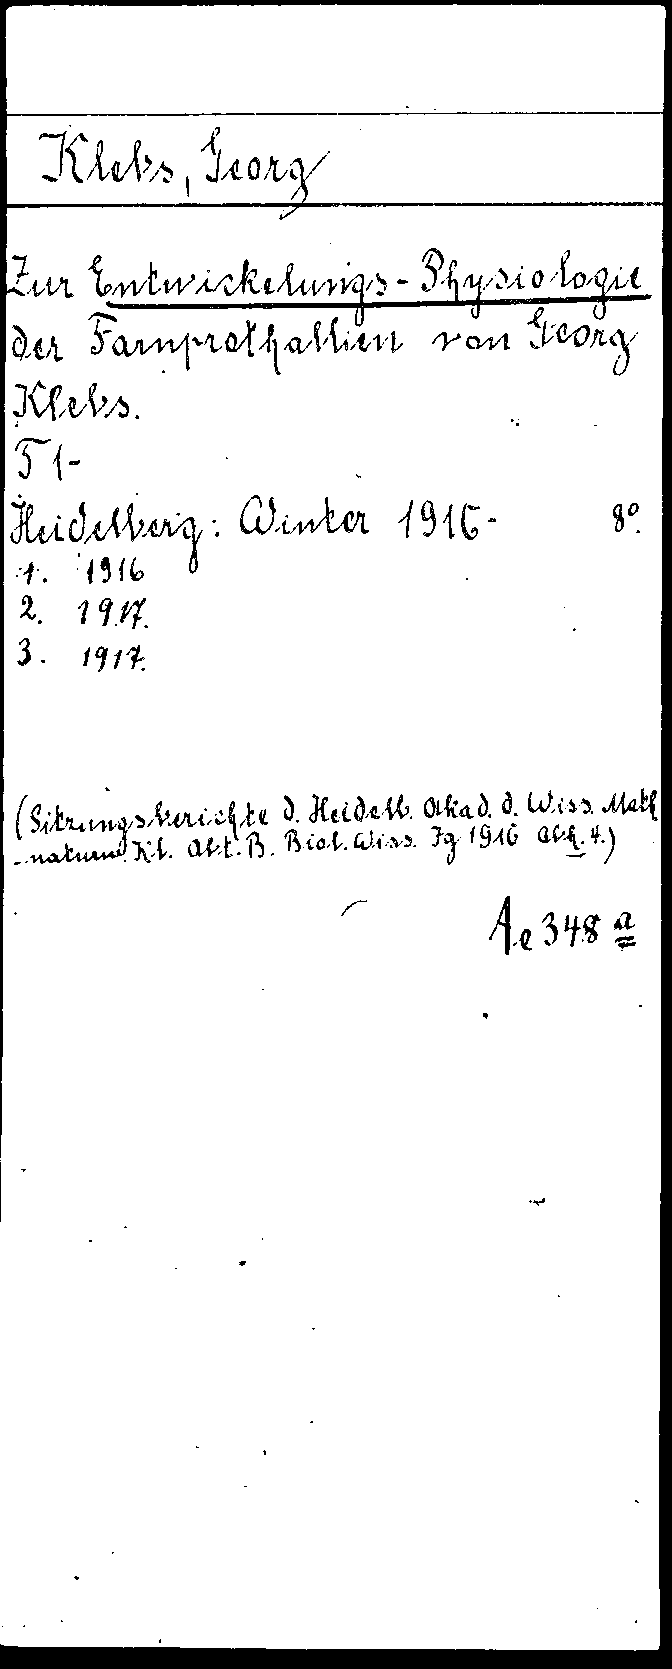 Klebs, Georg
Zur Entwickelungs-Physiologie
der Farnprothallien von Georg
Klebs.
T 1-
Heidelberg: Winter 1916- 8°.
1. 1916
2. 1917.
3. 1917.
(Sitzungsberichte d. Heidelb. Akad. d. Wiss. Math
-naturw. Kl. Abt. B. Biol. Wiss. Jg 1916 Abh. 4.)
Ae 348 a